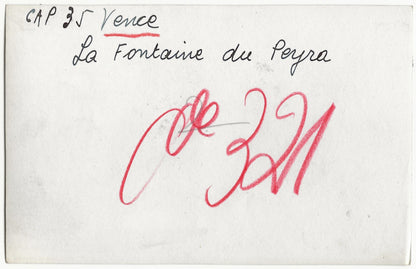 CAP 35 Vence
La Fontaine du Peyra
321